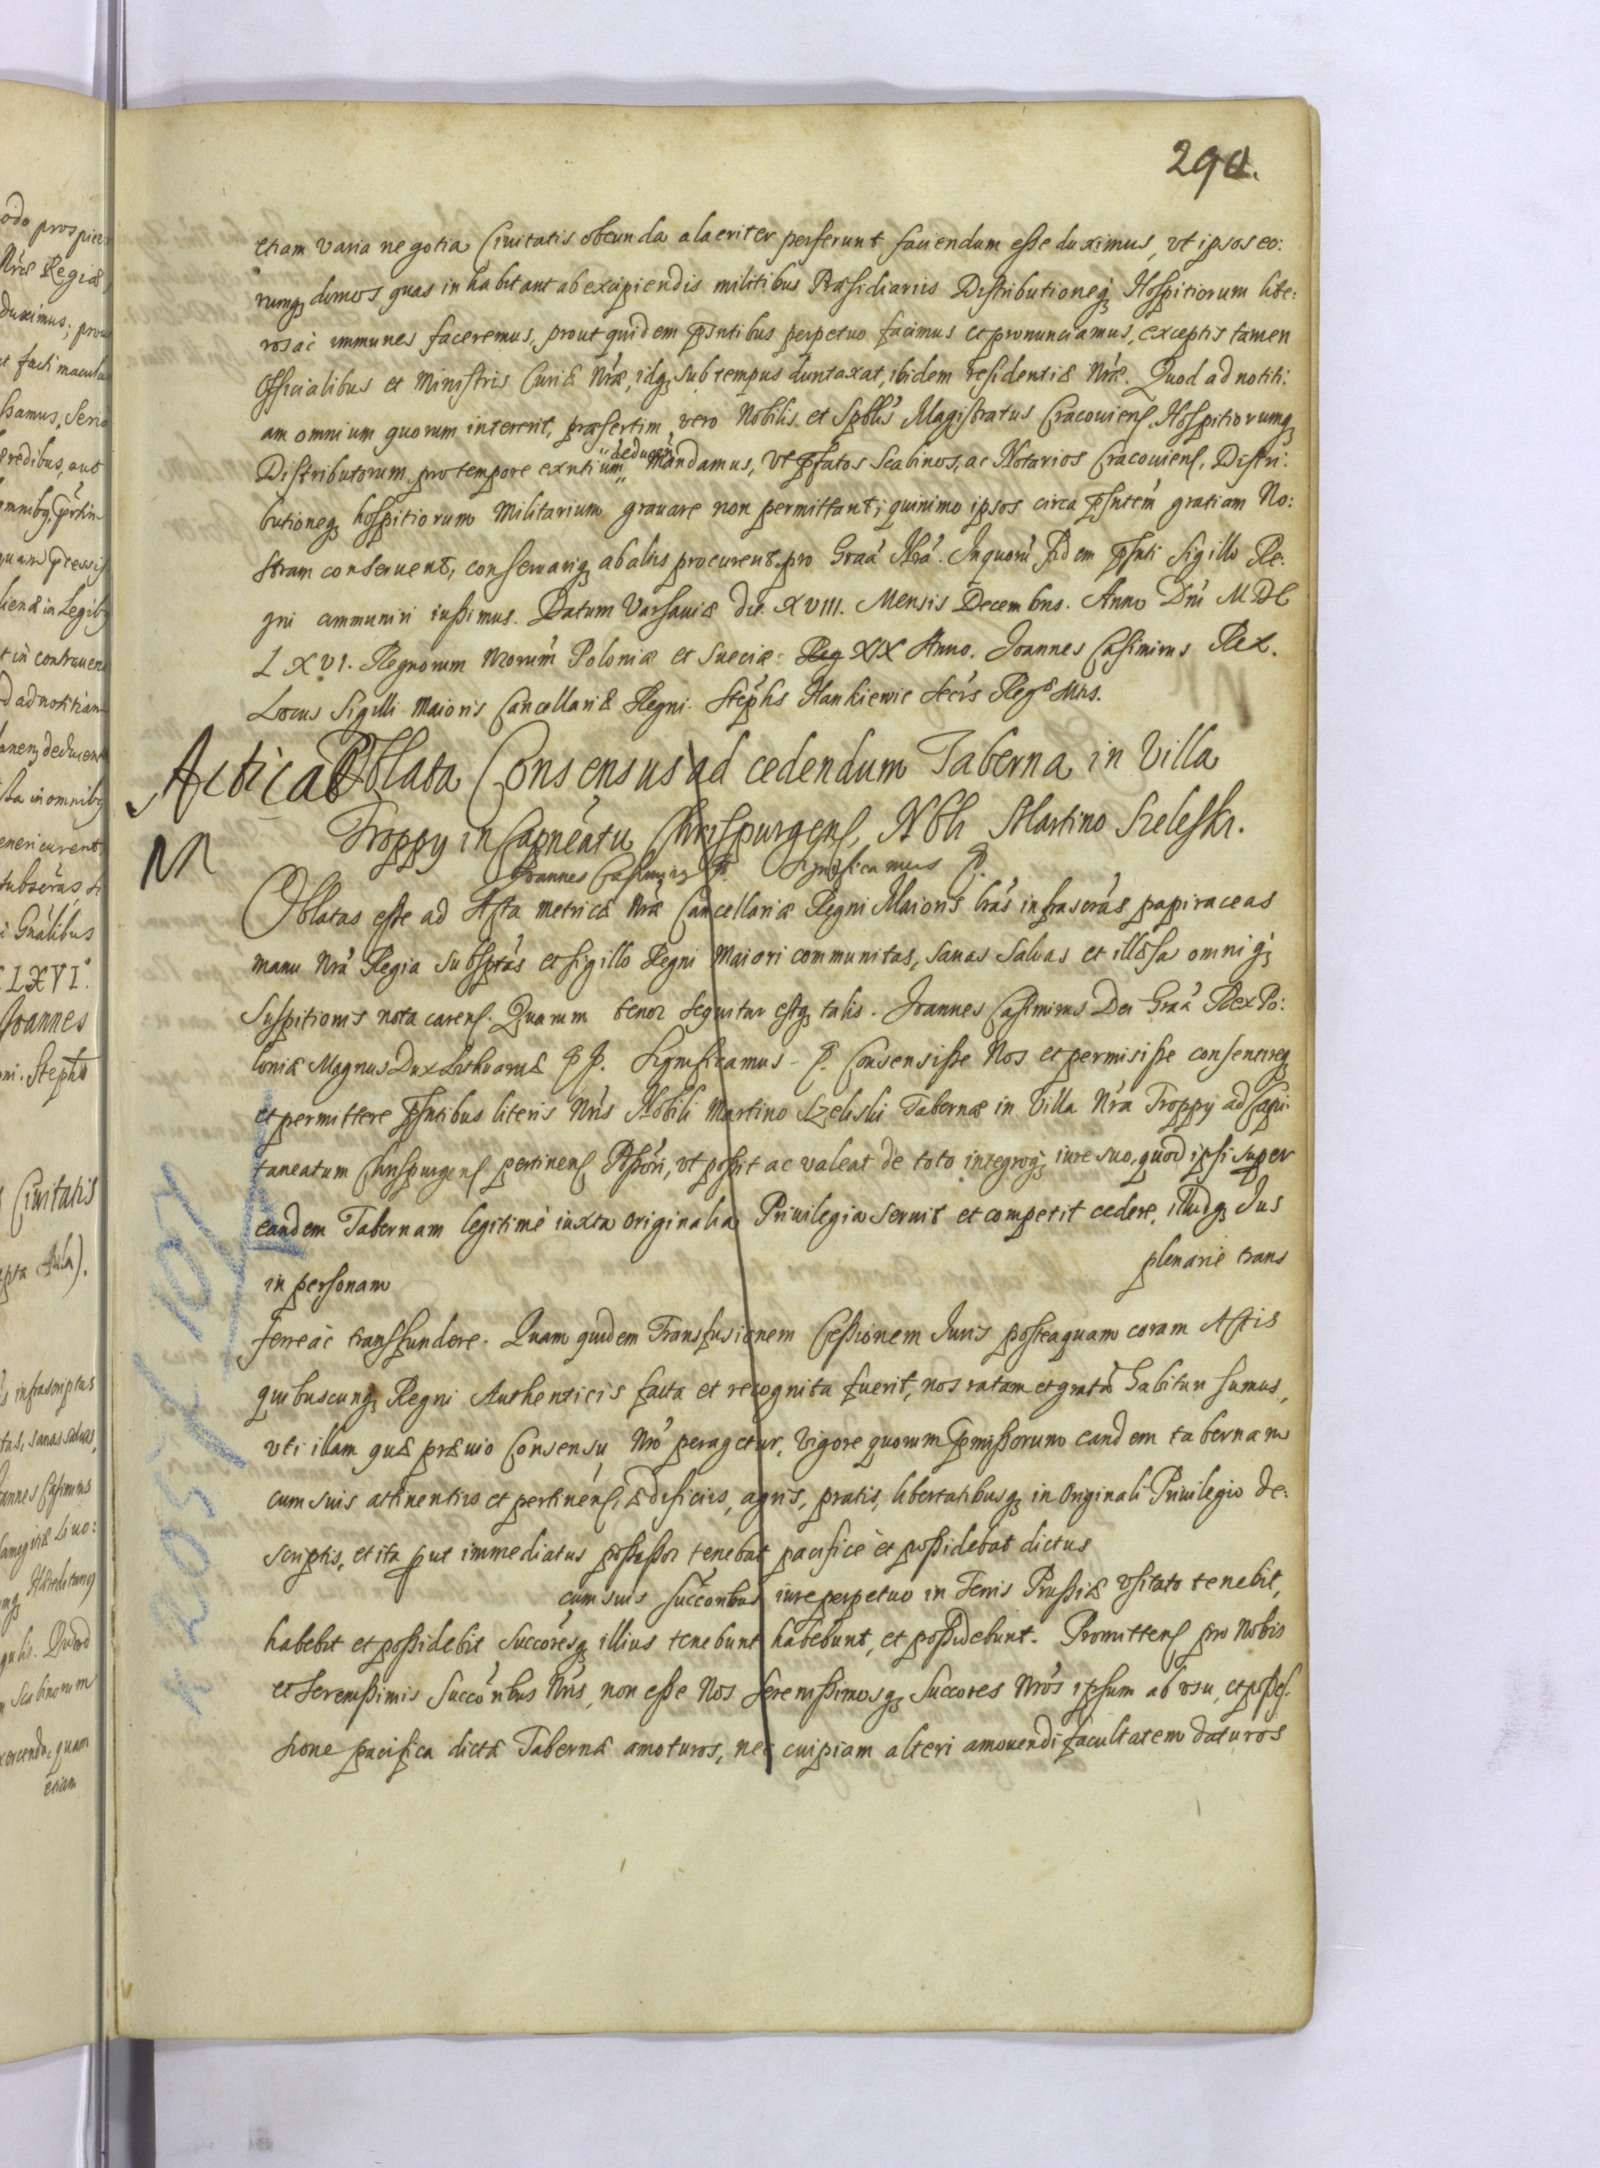 290.
etiam varia negotia Ciuitatis obeunda alacriter perferunt faciendum esse duximus, vt ipsos eo:
rumq domos quas inhabitant ab excipiendis militibus Præsidiariis Distributioneq Hospitiorum libe:
ros ac immunes faceremus, prout quidem pntibus perpetuo facimus et pronunciamus, exceptis tamen
Officialibus et Ministris Curiæ Nræ, idq sub tempus duntaxat, ibidem residentiæ Nræ. Quod ad notiti:
am omnium quorum intererit, præsertim vero Nobilis et Spblis Magistratus Cracouiens Hospitiorumq
deducen
Distributorum pro tempore exntium Mandamus, vt pfatos Scabinos, ac Notarios Cracouiens, Distri:
butioneq hospitiorum Militarium grauare non permittant; quinimo ipsos circa pntem gratiam No:
stram conseruent, conseruariq ab aliis procurent, pro Graa Nra. In quoru fidem pnti Sigillo Re:
gni communiri iussimus. Datum Varsauiæ die XVIII. Mensis Decembris. Anno Dni MDC
LXVI. Regnorum Nrorum Poloniæ et Sueciæ Reg XIX Anno. Joannes Casimirus Rex.
Locus Sigilli Maioris Cancellariæ Regni. Stephs Hankiewic Secrs Regæ Mtis.
Acticat Oblata Consensus ad cedendum Taberna in Villa
Troppy in Capneatu Chrispurgens, Nbli Martino Szelesky.
M
Joannes Casimirus Significamus
Oblatas esse ad Acta Metricæ Nræ Cancellariæ Regni Maioris lras infrascras papiraceas
manu Nra Regia subsptas et sigillo Regni Maiori communitas, sanas saluas et illæsas omniq
suspitionis nota carens. Quarum tenor sequitur estq talis. Joannes Casimirus Dei Graa Rex Po:
loniæ Magnus Dux Lithuaniæ Significamus Consensisse Nos et permisisse consentireq
et permittere pntibus literis Nris Nobili Martino Szeliski Tabernæ in Villa Nra Troppy ad Capi:
taneatum Chrispurgens pertinens Possori, vt possit ac valeat de toto integroq iure suo, quod ipsi super
eandem Tabernam legitime iuxta originalia Priuilegia seruit et competit cedere, illudq Jus
in personam plenarie trans
ferre ac transfundere. Quam quidem Transfusionem Cessionem Juris posteaquam coram Actis
quibuscunq Regni Authenticis facta et recognita fuerit, nos ratam et grata habituri sumus,
vti illam quæ præuio Consensu Nro peragetur. Vigore quorum pmissorum eandem tabernam
cum suis attinentiis et pertinens, ædificiis, agris, pratis, libertatibusq in Originali Priuilegio de:
scriptis, et ita put immediatus possessor tenebat pacifice et possidebat dictus
cum suis succoribus iure perpetuo in Terris Prussiæ vsitato tenebit,
habebit et possidebit succoresq illius tenebunt habebunt, et possidebunt. Promittens pro Nobis
et Serenissimis Succoribus Nris, non esse Nos Serenissimosq Succores Nros ipsum ab vsu, et posses:
sione pacifica dictæ Tabernæ amoturos, nec cuipiam alteri amouendi facultatem daturos